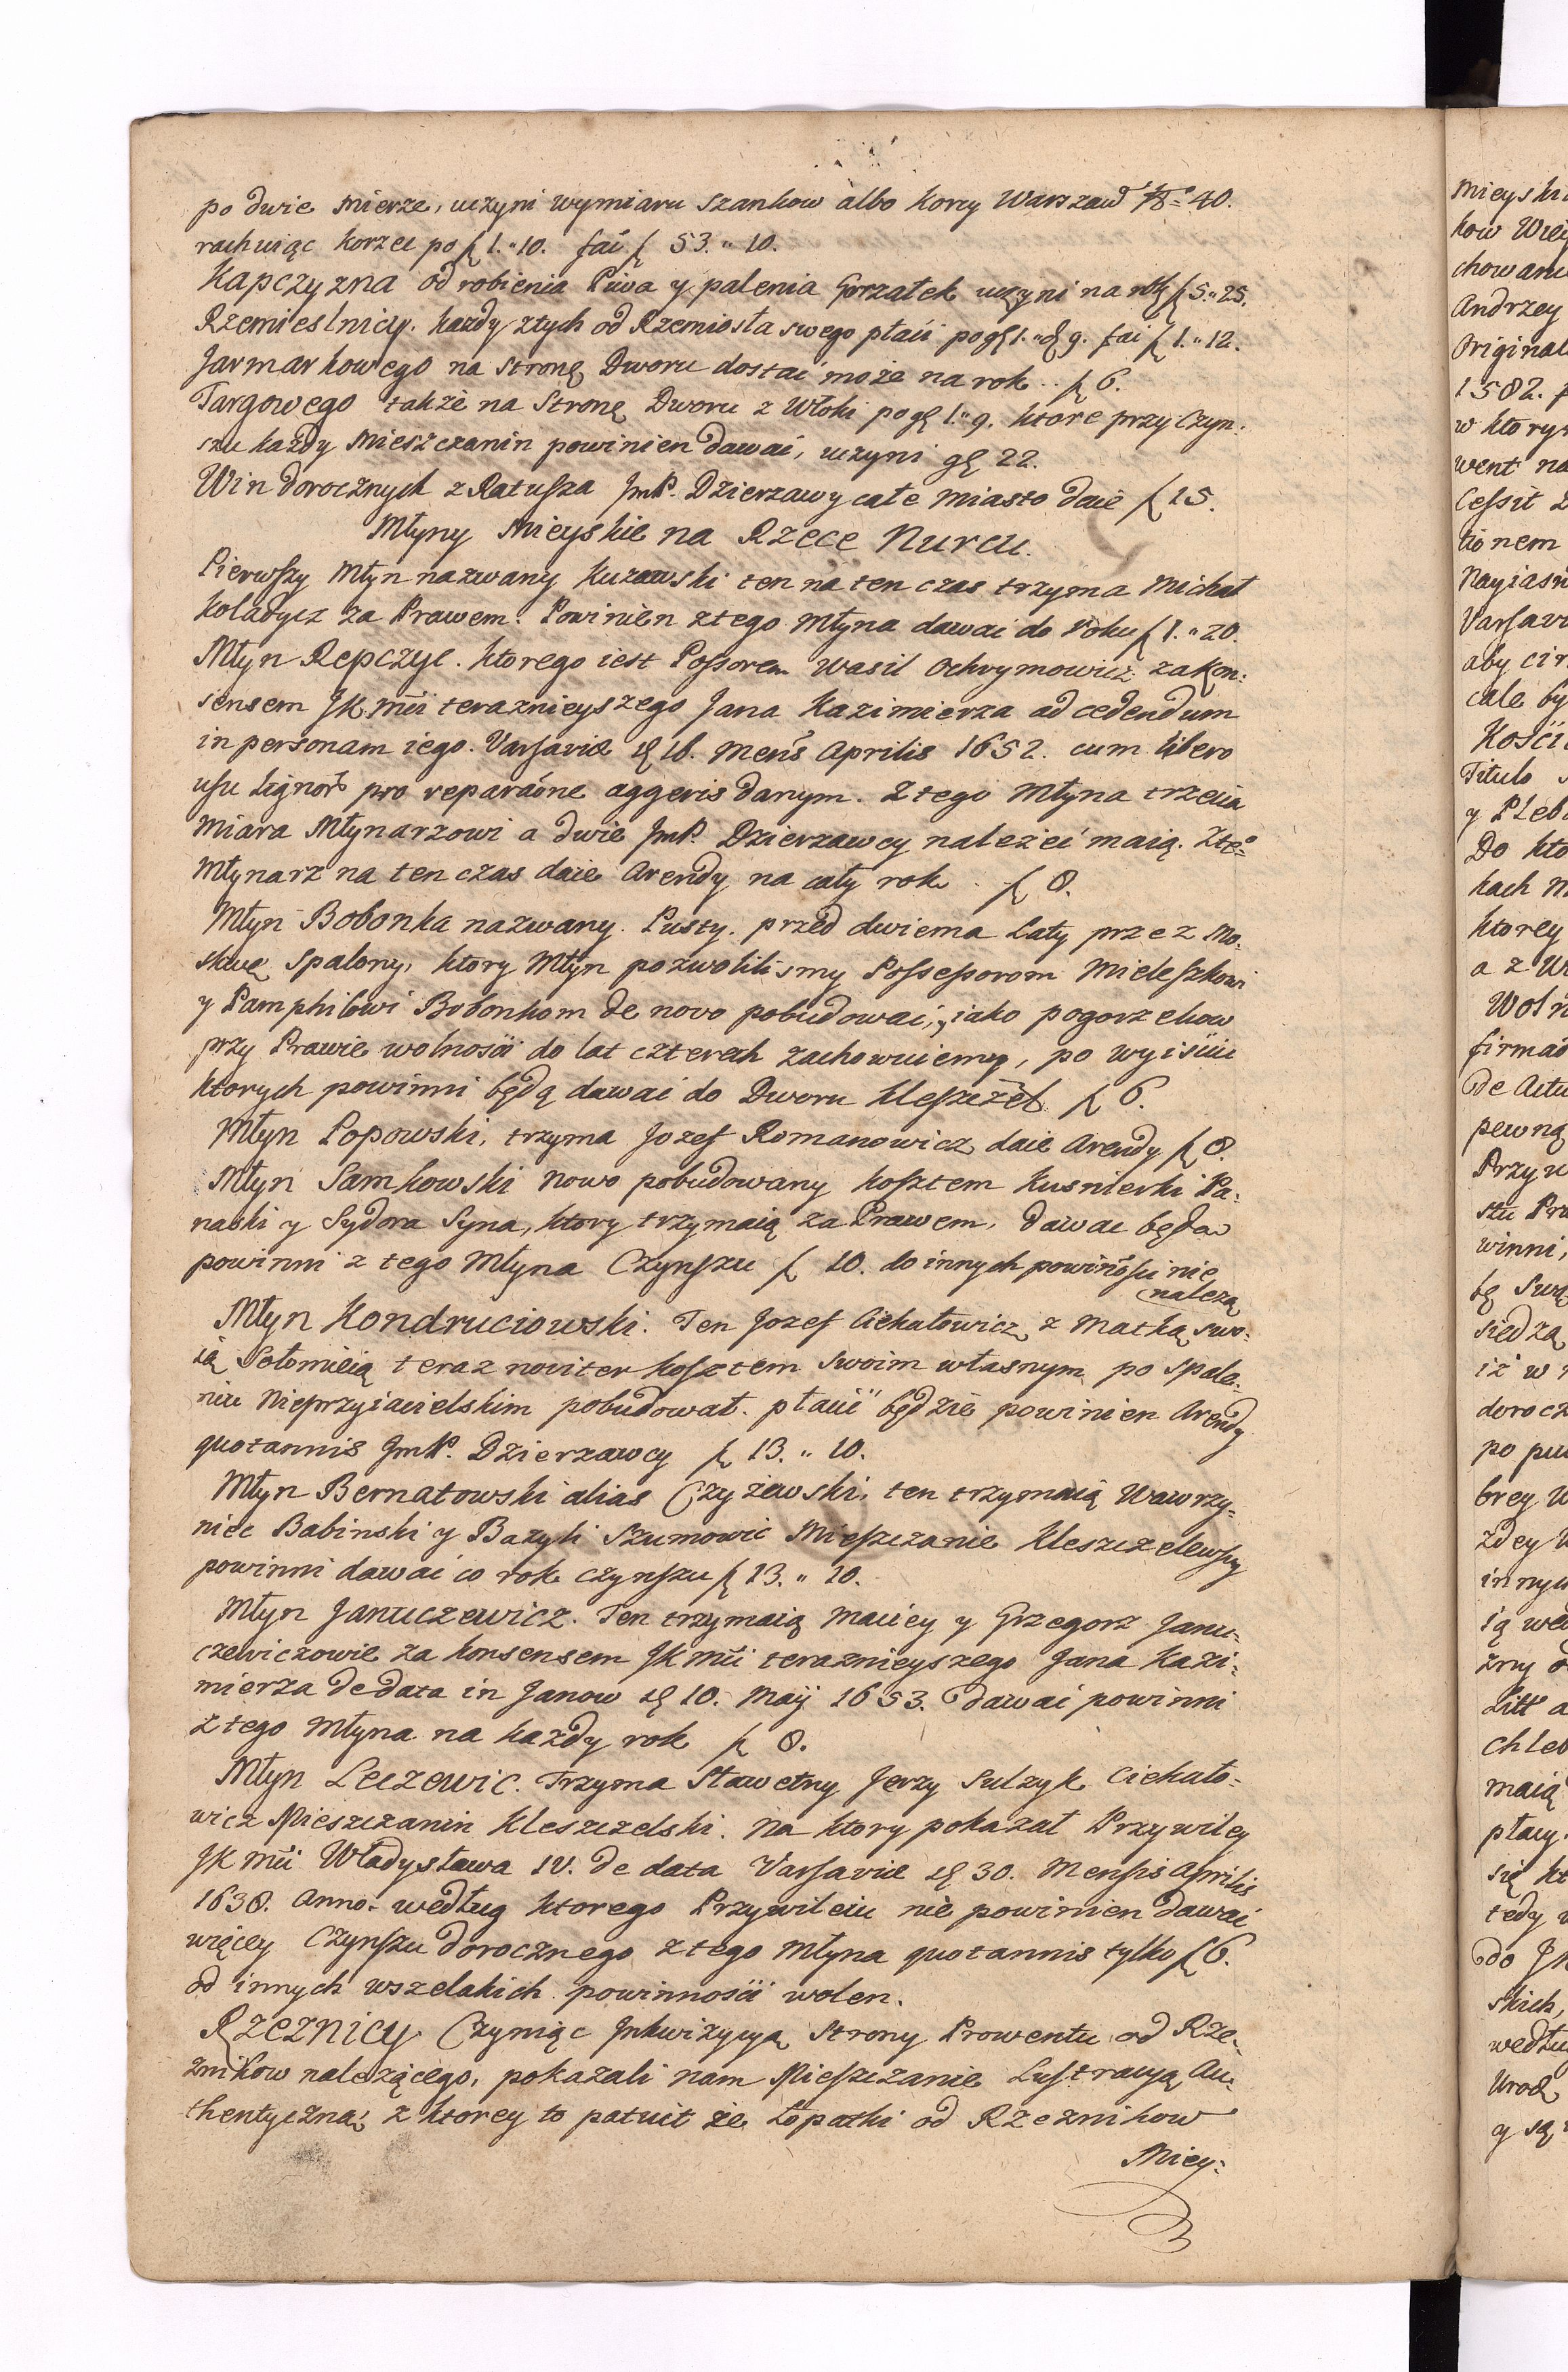 po dwie mierze, uczyni wymiaru szankow albo korcy Warszaw 40.
rachuiąc korzec po f 1."10. fać f 53."10.
Kapczyzna od robienia Piwa y palenia Gorzałek uczyni na rok f 5."25.
Rzemieslnicy. każdy z tych od Rzemiosła swego płaci po gr 1." 9. fać f 1."12.
Jarmarkowego na stronę Dworu dostać może na rok.. f 6.
Targowego także na Stronę Dworu z Włoki po gr 1."9. ktore przy Czyn:
szu każdy Mieszczanin powinien dawać, uczyni gr 22.
Win dorocznych z Ratusza JmP. Dzierzawcy całe Miasto daie f 15.
Młyny Mieyskie na Rzece Nurcu.
Pierwszy Młyn nazwany Kuzawski ten na ten czas trzyma Michał
Koladycz za Prawem. Powinien z tego Młyna dawać do roku f 1."20.
Młyn Repczyc. ktorego iest Possorem Wasil Ochrymowicz za kon:
sensem JKMci teraznieyszego Jana Kazimierza ad cedendum
in personam iego. Varsaviæ 18. Mens Aprilis 1652. cum libero
usu Lignor pro reparaóne aggeris danym. Z tego Młyna trzecia
miara Młynarzowi a dwie JmP. Dzierzawcy należeć maią. Z te°=
Młynarz na ten czas daie Arendy na cały rok. f 8.
Młyn Bobonka nazwany. Pusty. przed dwiema Laty przez Mo:
skwę spalony, ktory Młyn pozwolilismy Possessorom Mieleszkowi
y Pamphilowi Bobonkom de novo pobudować, y iako pogorzelcow
przy Prawie wolności do lat czterech zachowuiemy, po wyisciu
ktorych powinni będą dawać do Dworu Kleszczel f 6.
Młyn Popowski, trzyma Jozef Romanowicz daie Arendy f 8.
Młyn Samkowski nowo pobudowany kosztem Kusnierki Pa:
naski y Sydora Syna, ktory trzymaią za Prawem, dawac będą
powinni z tego Młyna Czynszu f 10. do innych powinósci nie
należą
Młyn Kondruciowski. Ten Jozef Ciekałowicz z Matką swo:
ią Sołomieią teraz noviter kosztem swoim własnym po spale:
niu Nieprzyiacielskim pobudował. płacić będzie powinien Arendy
quotannis JmP. Dzierzawcy f 13."10.
Młyn Bernatowski alias Czyżewski, ten trzymaią Wawrzy:
niec Babinski y Bazyli Szumowic Mieszczanie Kleszczelewscy
powinni dawać co rok czynszu f 13."10.
Młyn Januczewicz. Ten trzymaią Maciey y Grzegorz Janu:
czewiczowie za konsensem JKMci teraznieyszego Jana Kazi:
mierza de data in Janow 10. Maij 1653. dawać powinni
z tego Młyna na każdy rok f 8.
Młyn Leczewic. Trzyma Sławetny Jerzy Sulzyk Ciekało:
wicz Mieszczanin Kleszczelski. na ktory pokazał Przywiley
JKMci Władysława IV. de data Varsaviæ 30. Mensis Aprilis
1638. Anno: według ktorego Przywileiu nie powinien dawać
więcey Czynszu dorocznego z tego Młyna quotannis tylko f 6.
od innych wszelakich powinności wolen.
Rzeznicy Czyniąc Inkwizycyą strony Prowentu od Rze:
znikow należącego, pokazali nam Mieszczanie Lustracyą Au:
thentyczną, z ktorey to patuit że Łopatki od Rzeznikow
Miey: